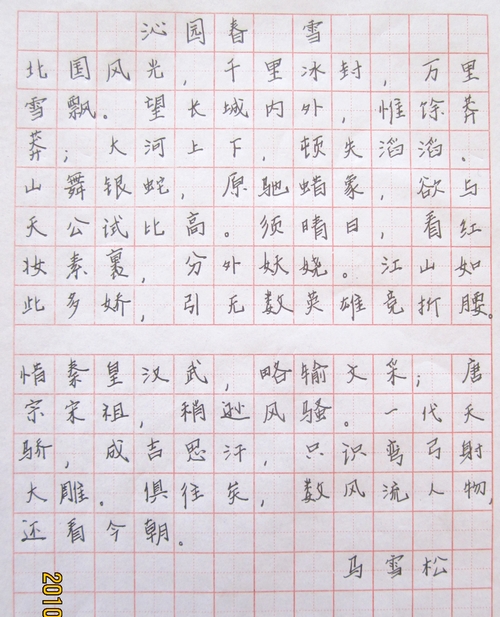 沁园春 雪
北国风光，千里冰封，万里
雪飘。望长城内外，惟馀莽
莽；大河上下，顿失滔滔。
山舞银蛇，原驰蜡象，欲与
天公试比高。须晴日，看红
妆素裹，分外妖娆。江山如
此多娇，引无数英雄竞折腰。
惜秦皇汉武，略输文采；唐
宗宋祖，稍逊风骚。一代天
骄，成吉思汗，只识弯弓射
大雕。俱往矣，数风流人物，
还看今朝。
马雪松
2010